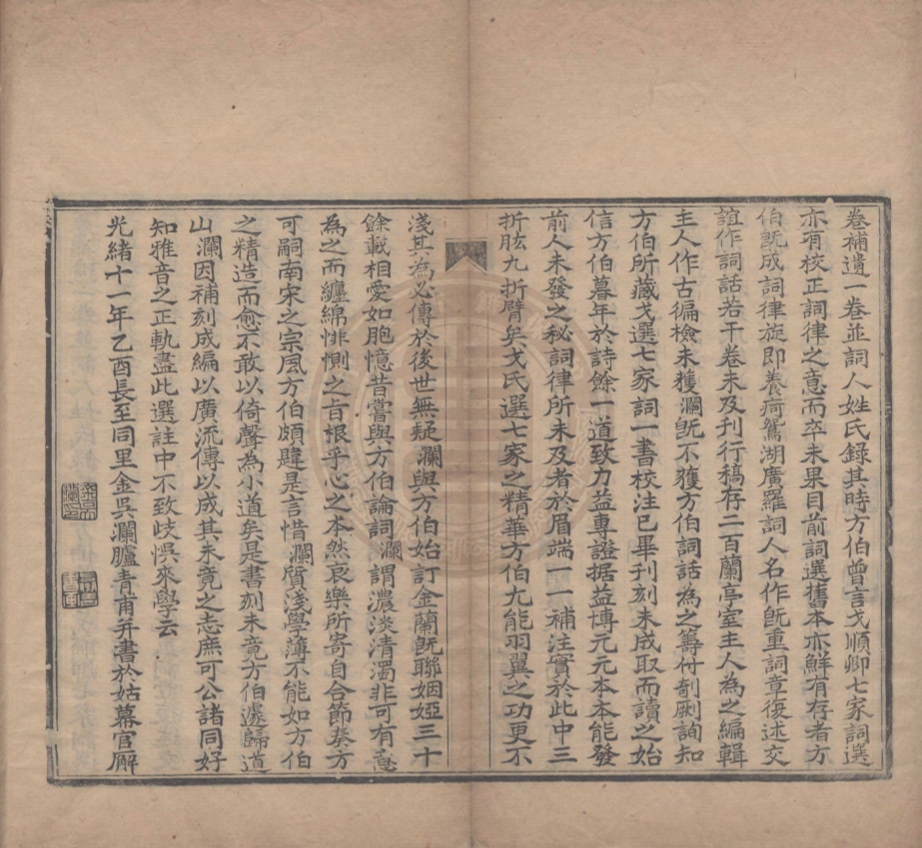 卷補遺一卷並詞人姓氏錄其時方伯曾言戈順卿七家詞選
亦有校正詞律之意而卒未果目前詞選舊本亦鮮有存者方
伯旣成詞律旋即養疴鴛湖廣羅詞人名作旣重詞章復述交
誼作詞話若干卷未及刊行稿存二百蘭亭室主人為之編輯
主人作古徧檢未獲瀾旣不獲方伯詞話為之籌付剞劂詢知
方伯所藏戈選七家詞一書校注已畢刊刻未成取而讀之始
信方伯暮年於詩餘一道致力益專證据益博元元本本能發
前人未發之秘詞律所未及者於眉端一一補注實於此中三
折肱九折臂矣戈氏選七家之精華方伯尤能羽翼之功更不
淺其為必傳於後世無疑瀾與方伯始訂金蘭旣聯姻婭三十
餘載相愛如胞憶昔嘗與方伯論詞瀾謂濃淡清濁非可有意
為之而纏綿悱惻之音根乎心之本然哀樂所寄自合節奏方
可嗣南宋之宗風方伯頗韙是言惜瀾質淺學薄不能如方伯
之精造而愈不敢以倚聲為小道矣是書刻未竟方伯遽歸道
山瀾因補刻成編以廣流傳以成其未竟之志庶可公諸同好
知雅音之正軌盡此選註中不致歧悞來學云
光緒十一年乙酉長至同里金吳瀾臚青甫幷書於姑幕官廨